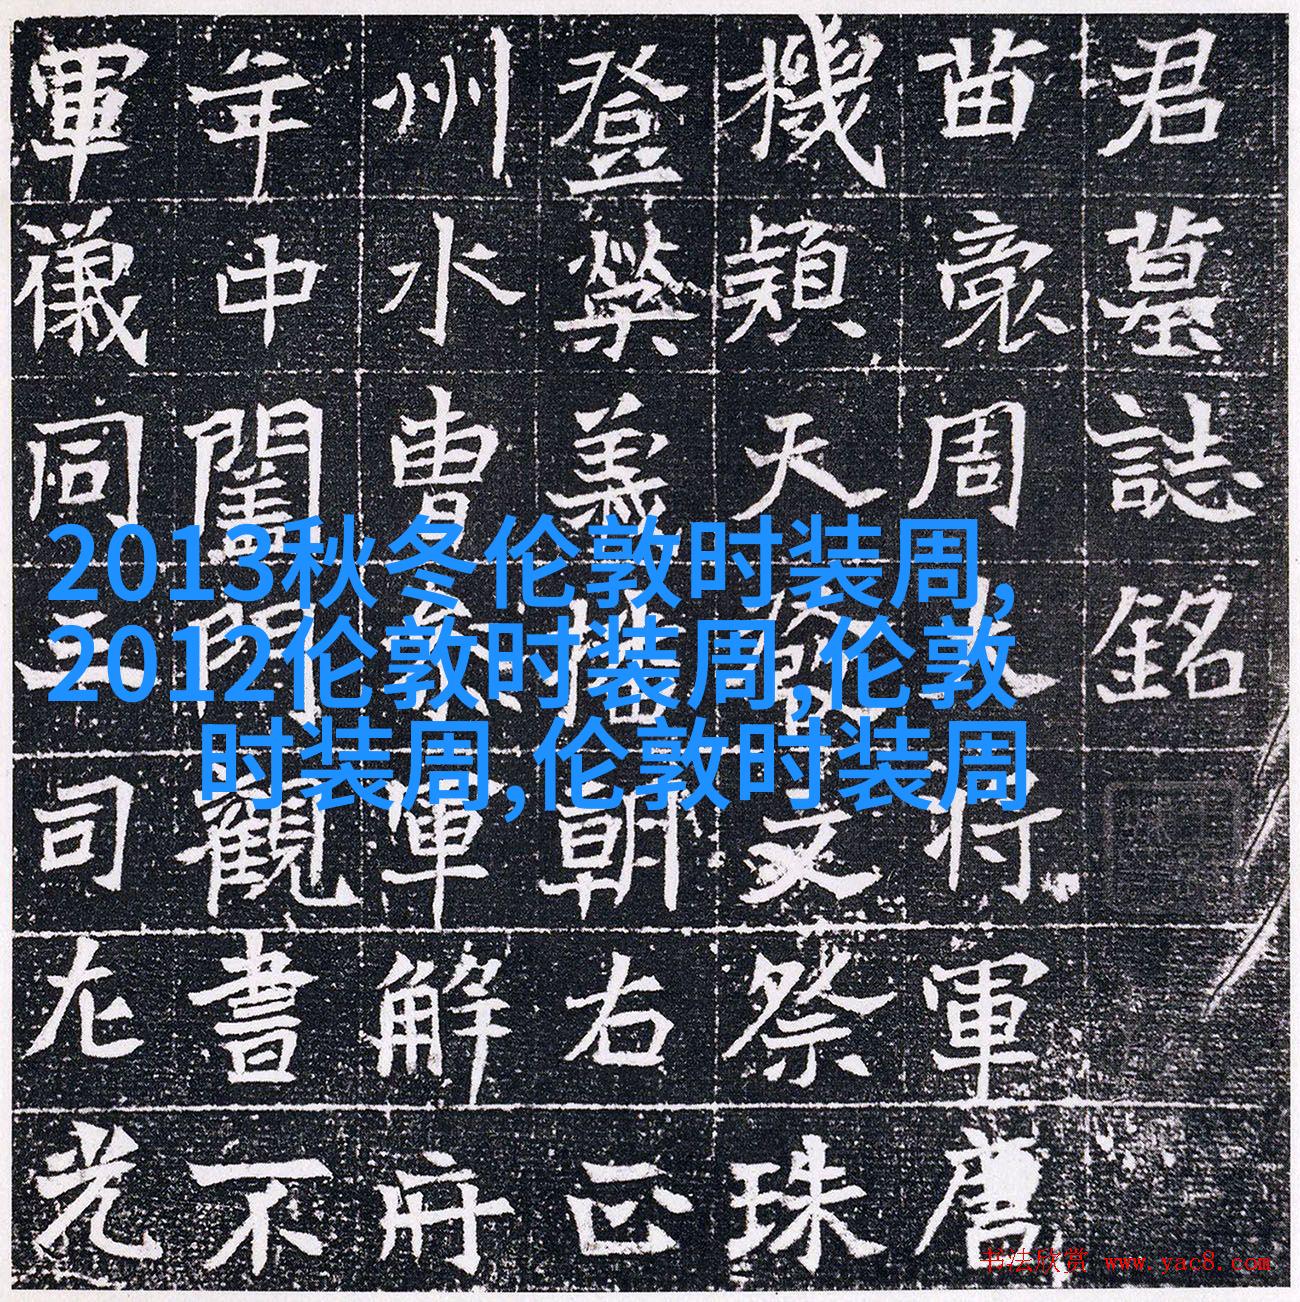 君墓誌銘
苗裔周行軍唐
機穎天文祭珠
登榮義朝右正
州水曹軍解
年中閨門觀書不
軍儀同三司左光
2013秋冬伦敦时装周,
2012伦敦时装周,伦敦
时装周,伦敦时装周
书法欣赏 www.yac8.com